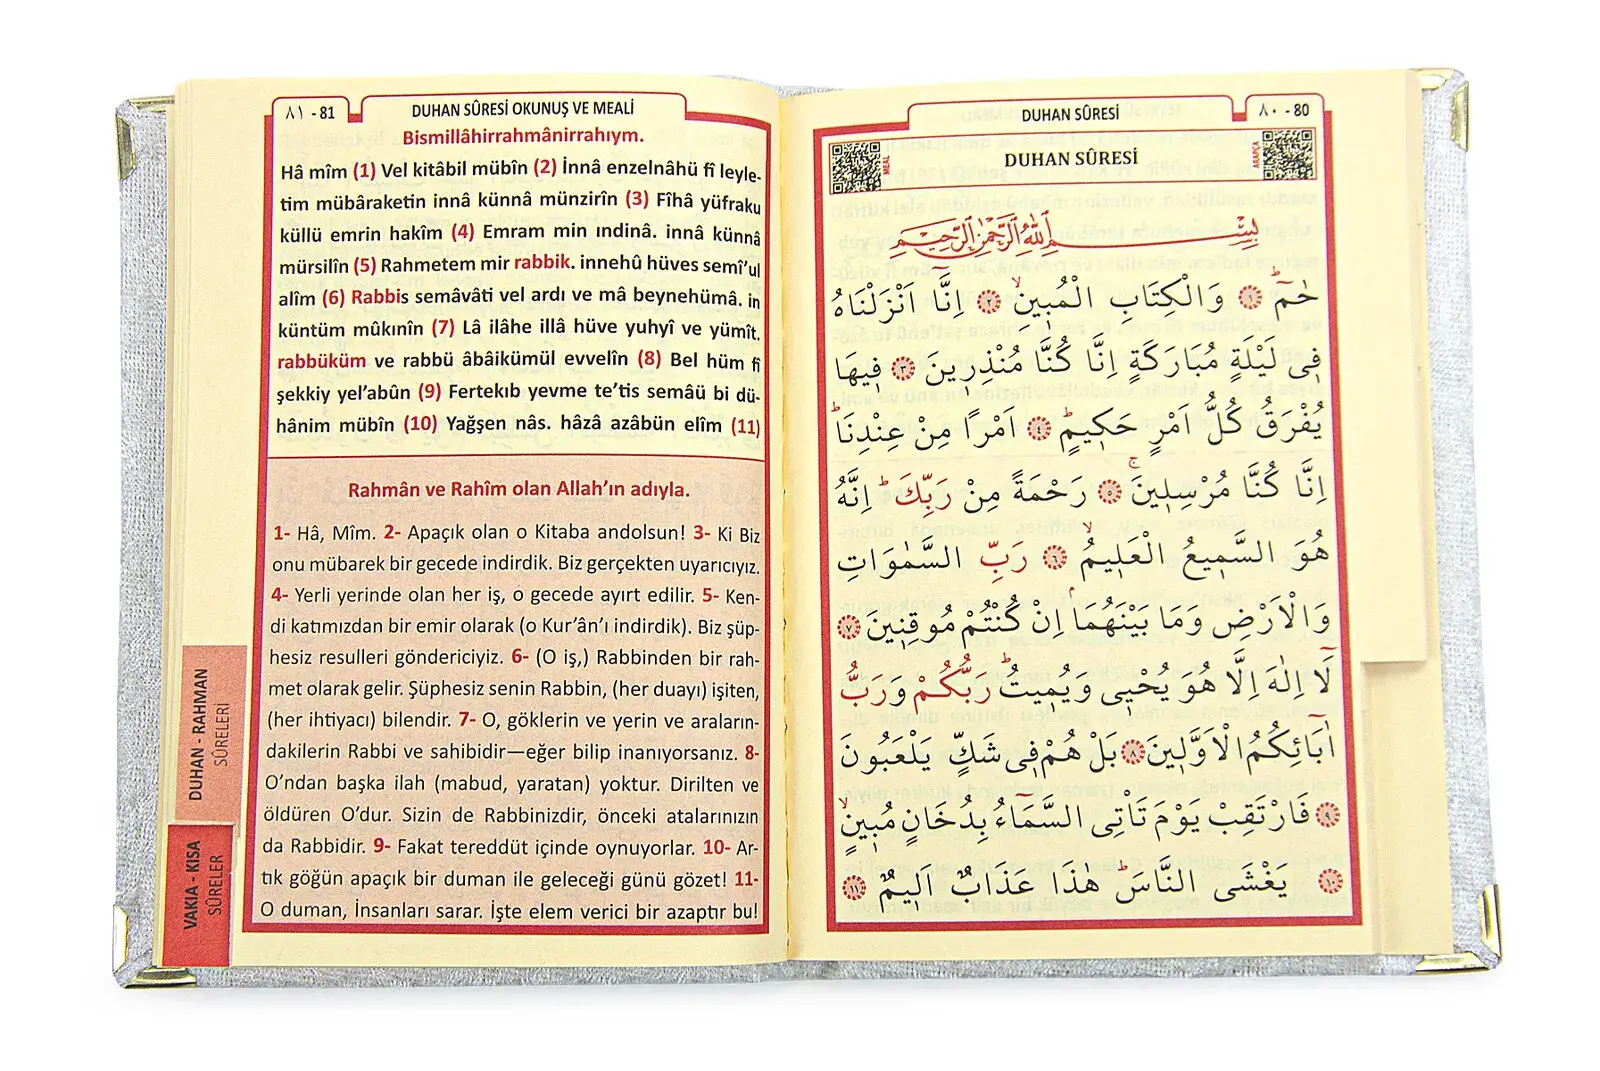 ٨١ - 81
DUHAN SÛRESİ OKUNUŞ VE MEALİ
Bismillâhirrahmânirrahıym.
Hâ mîm (1) Vel kitâbil mübîn (2) İnnâ enzelnâhü fî leyle-
tim mübâraketin innâ künnâ münzirîn (3) Fîhâ yüfraku
küllü emrin hakîm (4) Emram min ındinâ. innâ künnâ
mürsilîn (5) Rahmetem mir rabbik. innehû hüves semî’ul
alîm (6) Rabbis semâvâti vel ardı ve mâ beynehümâ. in
küntüm mûkınîn (7) Lâ ilâhe illâ hüve yuhyî ve yümît.
rabbüküm ve rabbü âbâikümül evvelîn (8) Bel hüm fî
şekkiy yel’abûn (9) Fertekıb yevme te’tis semâü bi dü-
hânim mübîn (10) Yağşen nâs. hâzâ azâbün elîm (11)
Rahmân ve Rahîm olan Allah’ın adıyla.
1- Hâ, Mîm. 2- Apaçık olan o Kitaba andolsun! 3- Ki Biz
onu mübarek bir gecede indirdik. Biz gerçekten uyarıcıyız.
4- Yerli yerinde olan her iş, o gecede ayırt edilir. 5- Ken-
di katımızdan bir emir olarak (o Kur’ân’ı indirdik). Biz şüp-
hesiz resulleri göndericiyiz. 6- (O iş,) Rabbinden bir rah-
met olarak gelir. Şüphesiz senin Rabbin, (her duayı) işiten,
(her ihtiyacı) bilendir. 7- O, göklerin ve yerin ve araların-
dakilerin Rabbi ve sahibidir—eğer bilip inanıyorsanız. 8-
O’ndan başka ilah (mabud, yaratan) yoktur. Dirilten ve
öldüren O’dur. Sizin de Rabbinizdir, önceki atalarınızın
da Rabbidir. 9- Fakat tereddüt içinde oynuyorlar. 10- Ar-
tık göğün apaçık bir duman ile geleceği günü gözet! 11-
O duman, İnsanları sarar. İşte elem verici bir azaptır bu!
DUHAN - RAHMAN
SÛRELERİ
VAKIA - KISA
SÛRELER
DUHAN SÛRESİ
٨٠ - 80
MEAL
DUHAN SÛRESİ
ARAPÇA
بِسْمِ اللّٰهِ الرَّحْمٰنِ الرَّحِيمِ
حٰمٓ ۚ ﴿١﴾ وَالْكِتَابِ الْمُبِينِ ۙ ﴿٢﴾ اِنَّٓا اَنْزَلْنَاهُ
فِي لَيْلَةٍ مُبَارَكَةٍ اِنَّا كُنَّا مُنْذِرِينَ ﴿٣﴾ فِيهَا
يُفْرَقُ كُلُّ اَمْرٍ حَكِيمٍ ۙ ﴿٤﴾ اَمْرًا مِنْ عِنْدِنَا ۜ
اِنَّا كُنَّا مُرْسِلِينَ ۚ ﴿٥﴾ رَحْمَةً مِنْ رَبِّكَ ۜ اِنَّهُ
هُوَ السَّمِيعُ الْعَلِيمُ ۙ ﴿٦﴾ رَبِّ السَّمٰوَاتِ
وَالْاَرْضِ وَمَا بَيْنَهُمَا ۢ اِنْ كُنْتُمْ مُوقِنِينَ ﴿٧﴾
لَٓا اِلٰهَ اِلَّا هُوَ يُحْيِي وَيُمِيتُ ۜ رَبُّكُمْ وَرَبُّ
اٰبَٓائِكُمُ الْاَوَّلِينَ ﴿٨﴾ بَلْ هُمْ فِي شَكٍّ يَلْعَبُونَ
﴿٩﴾ فَارْتَقِبْ يَوْمَ تَاْتِي السَّمَٓاءُ بِدُخَانٍ مُبِينٍ ۙ
﴿١٠﴾ يَغْشَى النَّاسَ ۜ هٰذَا عَذَابٌ اَلِيمٌ ﴿١١﴾